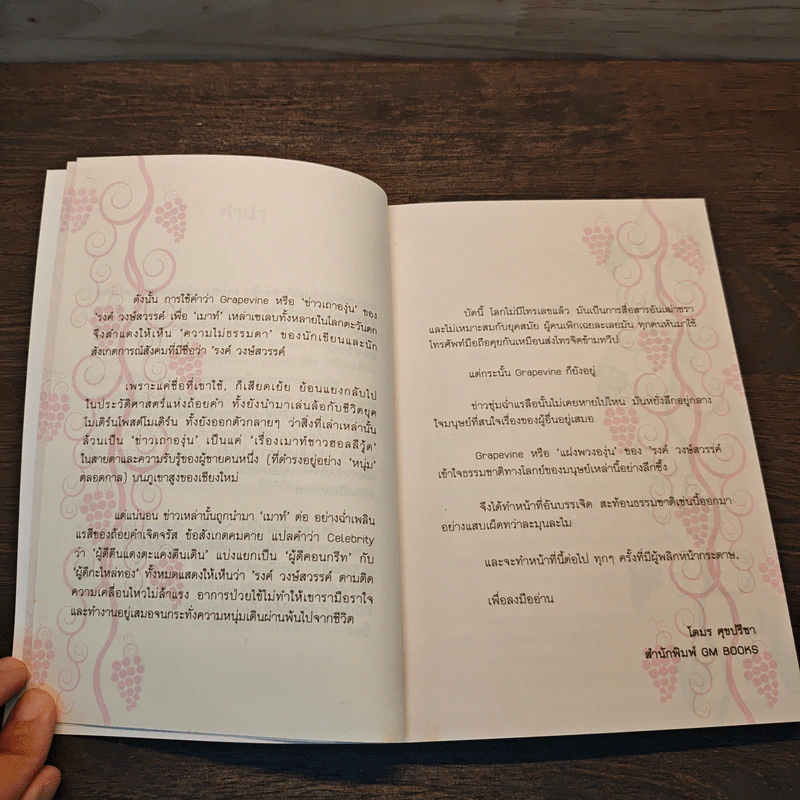 ดังนั้น การใช้คำว่า Grapevine หรือ 'ข่าวเถาองุ่น' ของ
'รงค์ วงษ์สวรรค์ เพื่อ 'เมาท์' เหล่าเซเลบทั้งหลายในโลกตะวันตก
จึงสำแดงให้เห็น 'ความไม่ธรรมดา' ของนักเขียนและนัก
สังเกตการณ์สังคมที่มีชื่อว่า 'รงค์ วงษ์สวรรค์
เพราะแค่ชื่อที่เขาใช้, ก็เสียดเย้ย ย้อนแยงกลับไป
ในประวัติศาสตร์แห่งถ้อยคำ ทั้งยังนำมาเล่นล้อกับชีวิตยุค
โมเดิร์นโพสต์โมเดิร์น ทั้งยังออกตัวกลายๆ ว่าสิ่งที่เล่าเหล่านั้น
ล้วนเป็น 'ข่าวเถาองุ่น' เป็นแค่ 'เรื่องเมาท์ชาวฮอลลีวู้ด'
ในสายตาและความรับรู้ของผู้ชายคนหนึ่ง (ที่ดำรงอยู่อย่าง 'หนุ่ม'
ตลอดกาล) บนภูเขาสูงของเชียงใหม่
แต่แน่นอน ข่าวเหล่านั้นถูกนำมา 'เมาท์' ต่อ อย่างฉ่ำเพลิน
แรสีของถ้อยคำเจิดจรัส ข้อสังเกตคมคาย แปลคำว่า Celebrity
ว่า 'ผู้ดีตีนแดงตะแคงตีนเดิน' แบ่งแยกเป็น 'ผู้ดีคอนกรีท' กับ
'ผู้ดีกะไหล่ทอง' ทั้งหมดแสดงให้เห็นว่า 'รงค์ วงษ์สวรรค์ ตามติด
ความเคลื่อนไหวไม่ล้าแรง อาการป่วยไข้ไม่ทำให้เขารามือราใจ
และทำงานอยู่เสมอจนกระทั่งความหนุ่มเดินผ่านพ้นไปจากชีวิต
บัดนี้ โลกไม่มีโทรเลขแล้ว มันเป็นการสื่อสารอันเฒ่าชรา
และไม่เหมาะสมกับยุคสมัย ผู้คนเพิกเฉยละเลยมัน ทุกคนหันมาใช้
โทรศัพท์มือถือคุยกันเหมือนส่งโทรจิตข้ามทวีป
แต่กระนั้น Grapevine ก็ยังอยู่
ข่าวซุ่มฉ่ำแรลือนั้นไม่เคยหายไปไหน มันหยั่งลึกอยู่กลาง
ใจมนุษย์ที่สนใจเรื่องของผู้อื่นอยู่เสมอ
Grapevine หรือ 'แฝงพวงองุ่น' ของ 'รงค์ วงษ์สวรรค์
เข้าใจธรรมชาติทางโลกย์ของมนุษย์เหล่านี้อย่างลึกซึ้ง
จึงได้ทำหน้าที่อันบรรเจิด สะท้อนธรรมชาติเช่นนี้ออกมา
อย่างแสบเผ็ดทว่าละมุนละไม
และจะทำหน้าที่นี้ต่อไป ทุกๆ ครั้งที่มีผู้พลิกหน้ากระดาษ,
เพื่อลงมืออ่าน
โตมร ศุขปรีชา
สำนักพิมพ์ GM BOOKS